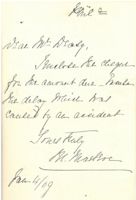 Dear Mr Deasy,
I enclose the cheque
for the amount due. Pardon
the delay which was
caused by an accident
Yours truly
Jan 4/09